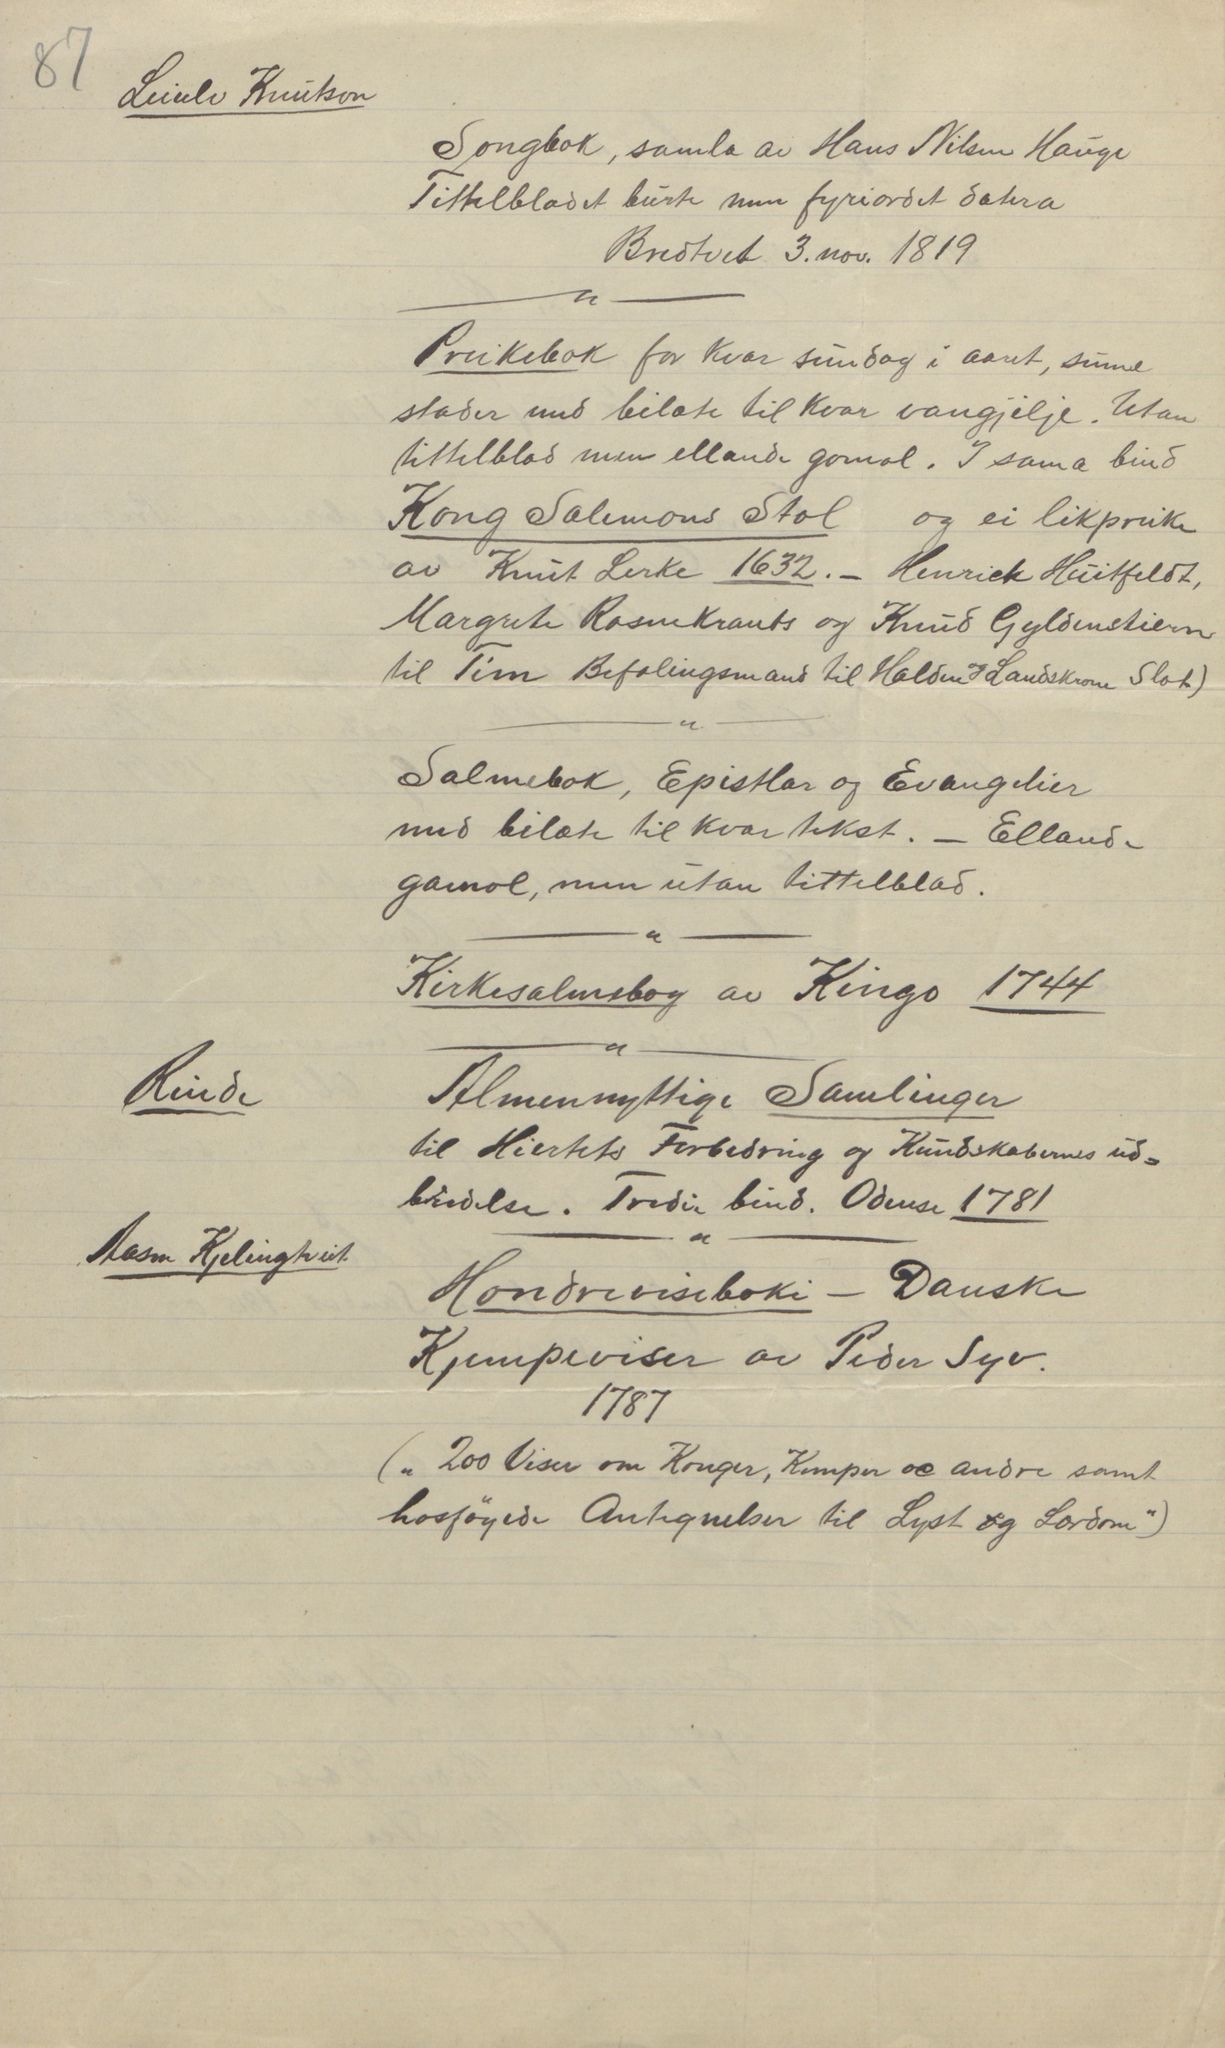 87
Leiulv Knutson
Songbok, samla av Hans Nilsen Hauge
Tittelbladet burte men fyriordet datera
Bredtvet 3. nov. 1819
"
Preikebok for kvar sundag i aaret, sume
stader med bilæte til kvar vangjelje. Utan
tittelblad men ellande gamal. I sama bind
Kong Salemons Stol og ei likpreike
av Knut Lerke 1632. — Henrick Huitfeldt,
Margrete Rosenkrants og Knud Gyldenstiern
til Tim Befalingsmand til Halden og Landskrone Slot)
"
Salmebok, Epistlar og Evangelier
med bilæte til kvar tekst. — Ellande
gamol, men utan tittelblad.
"
Kirkesalmebog av Kingo 1744
"
Rinde
Almennyttige Samlinger
til Hiertets Forbedring og Kundskabernes ud=
bredelse. Tredie bind. Odense 1781
"
Aasne Kjelingtveit
Hondreviseboki — Danske
Kjempeviser av Peder Syv.
1787
(„ 200 Viser om Konger, Kemper oc andre samt
hosföyede Antegnelser til Lyst og Lærdom")